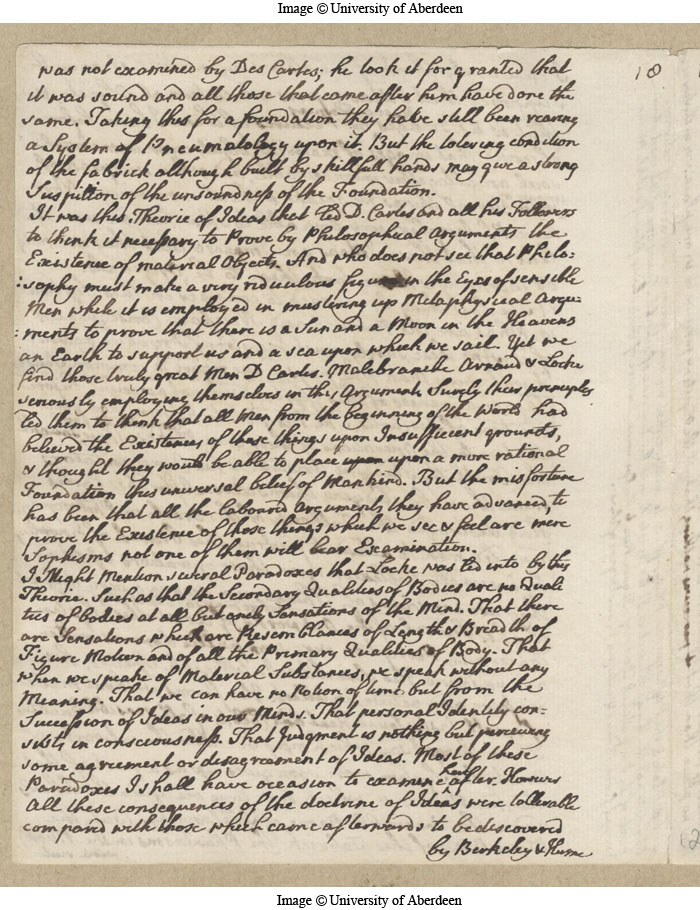 Image © University of Aberdeen
18
was not examined by Des Cartes; he took it for granted that
it was sound and all those that came after him have done the
same. Taking this for a foundation they have still been rearing
a System of Pneumatology upon it. But the totering condition
of the fabrick although built by skillfull hands may give a strong
Suspition of the unsoundness of the Foundation.
It was this Theorie of Ideas that led D. Cartes and all his Followers
to think it necessary to Prove by Philosophical Arguments the
Existence of material Objects. And who does not see that Philo:
:sophy must make a very ridiculous figure in the Eyes of sensible
Men while it is employed in mustering up Metaphysical Argu:
:ments to prove that there is a Sun and a Moon in the Heavens
an Earth to support us and a sea upon which we sail. Yet we
find those truly great Men D Cartes. Malebranche Arnaud & Locke
seriously employing themselves in this Argument. Surely their principles
led them to think that all Men from the beginning of the World had
believed the Existences of these things upon Insufficient grounds,
& thought they would be able to place upon upon a more rational
Foundation this universal belief of Mankind. But the misfortune
has been that all the laboured Arguments they have advanced, to
prove the Existence of those things which we see & feel are mere
Sophisms not one of them will bear Examination.
I Might Mention several Paradoxes that Locke was led into by this
Theorie. Such as that the Secondary Qualities of Bodies are no Quali
ties of bodies at all but only Sensations of the Mind. That there
are Sensations which are Resemblances of Length & Breadth of
Figure Motion and of all the Primary Qualities of Body. That
when we speake of Material Substances, we speak without any
Meaning. That we can have no Notion of time but from the
Succession of Ideas in our Minds. That personal Identity con:
sists in consciousness. That Judgment is nothing but perceiving
some agreement or disagreement of Ideas. Most of these
Paradoxes I shall have occasion to examine hereafter. However
All these consequences of the doctrine of Ideas were tollerable
compared with those which came afterwards to be discovered
by Berkeley & Hume
Image © University of Aberdeen